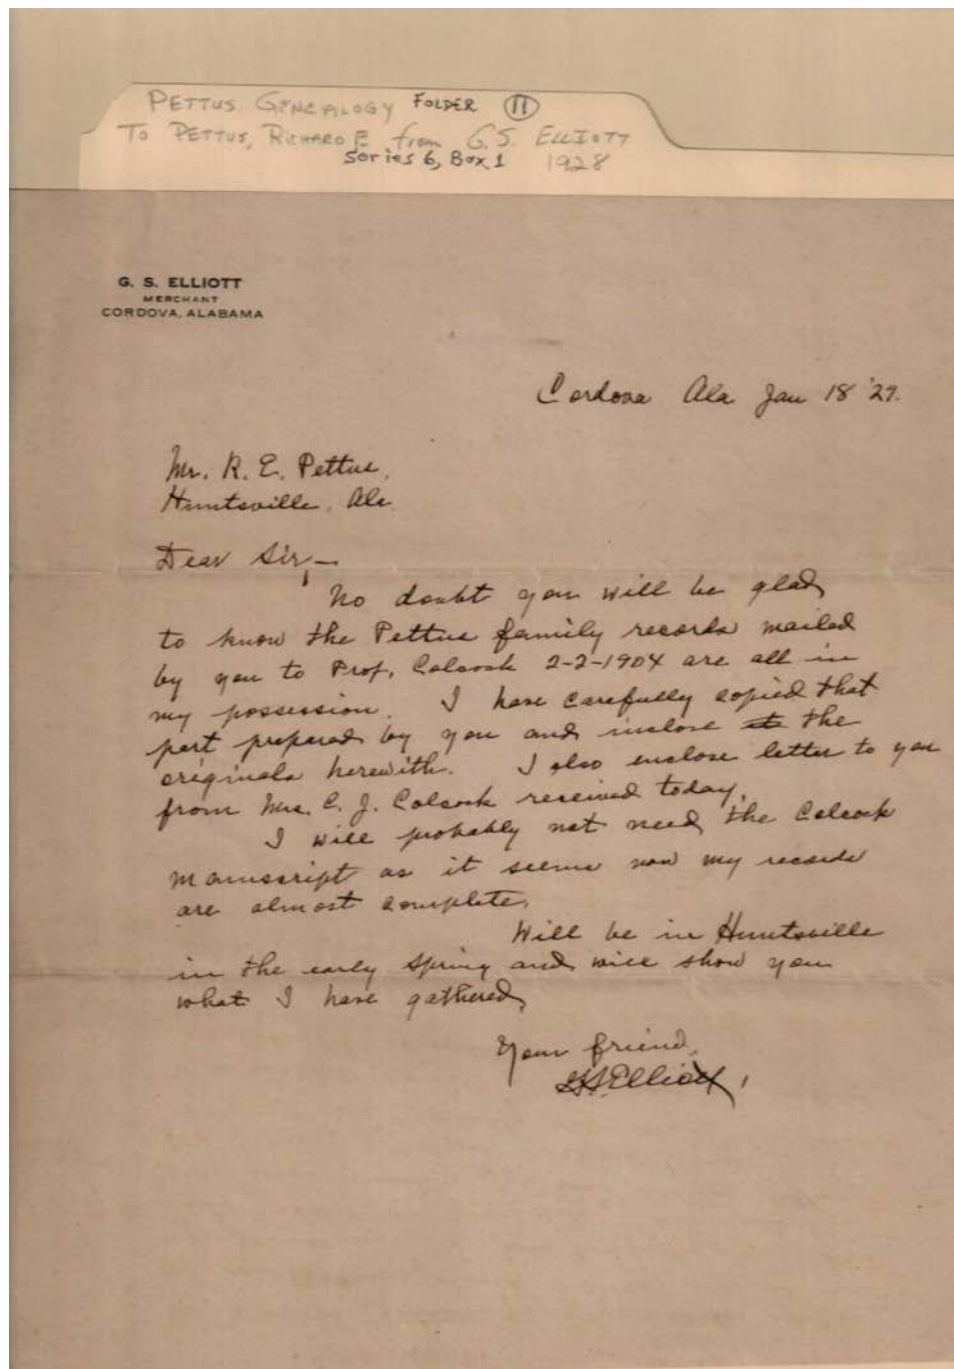 PETTUS GENEALOGY FOLDER 11
TO PETTUS, RICHARD E. from G.S. ELLIOTT
Series 6, Box 1 1928
G. S. ELLIOTT
MERCHANT
CORDOVA, ALABAMA
Cordova Ala Jan 18 '29.
Mr. R. E. Pettus,
Huntsville, Ala.
Dear Sir,—
No doubt you will be glad
to know the Pettus family records mailed
by you to Prof. Colcock 2-2-1904 are all in
my possession. I have carefully copied that
part prepared by you and inclose the
originals herewith. I also enclose letter to you
from Mrs. C. J. Colcock received today.
I will probably not need the Colcock
manuscript as it seems now my records
are almost complete.
Will be in Huntsville
in the early spring and will show you
what I have gathered,
Your friend,
G.S. Elliott,